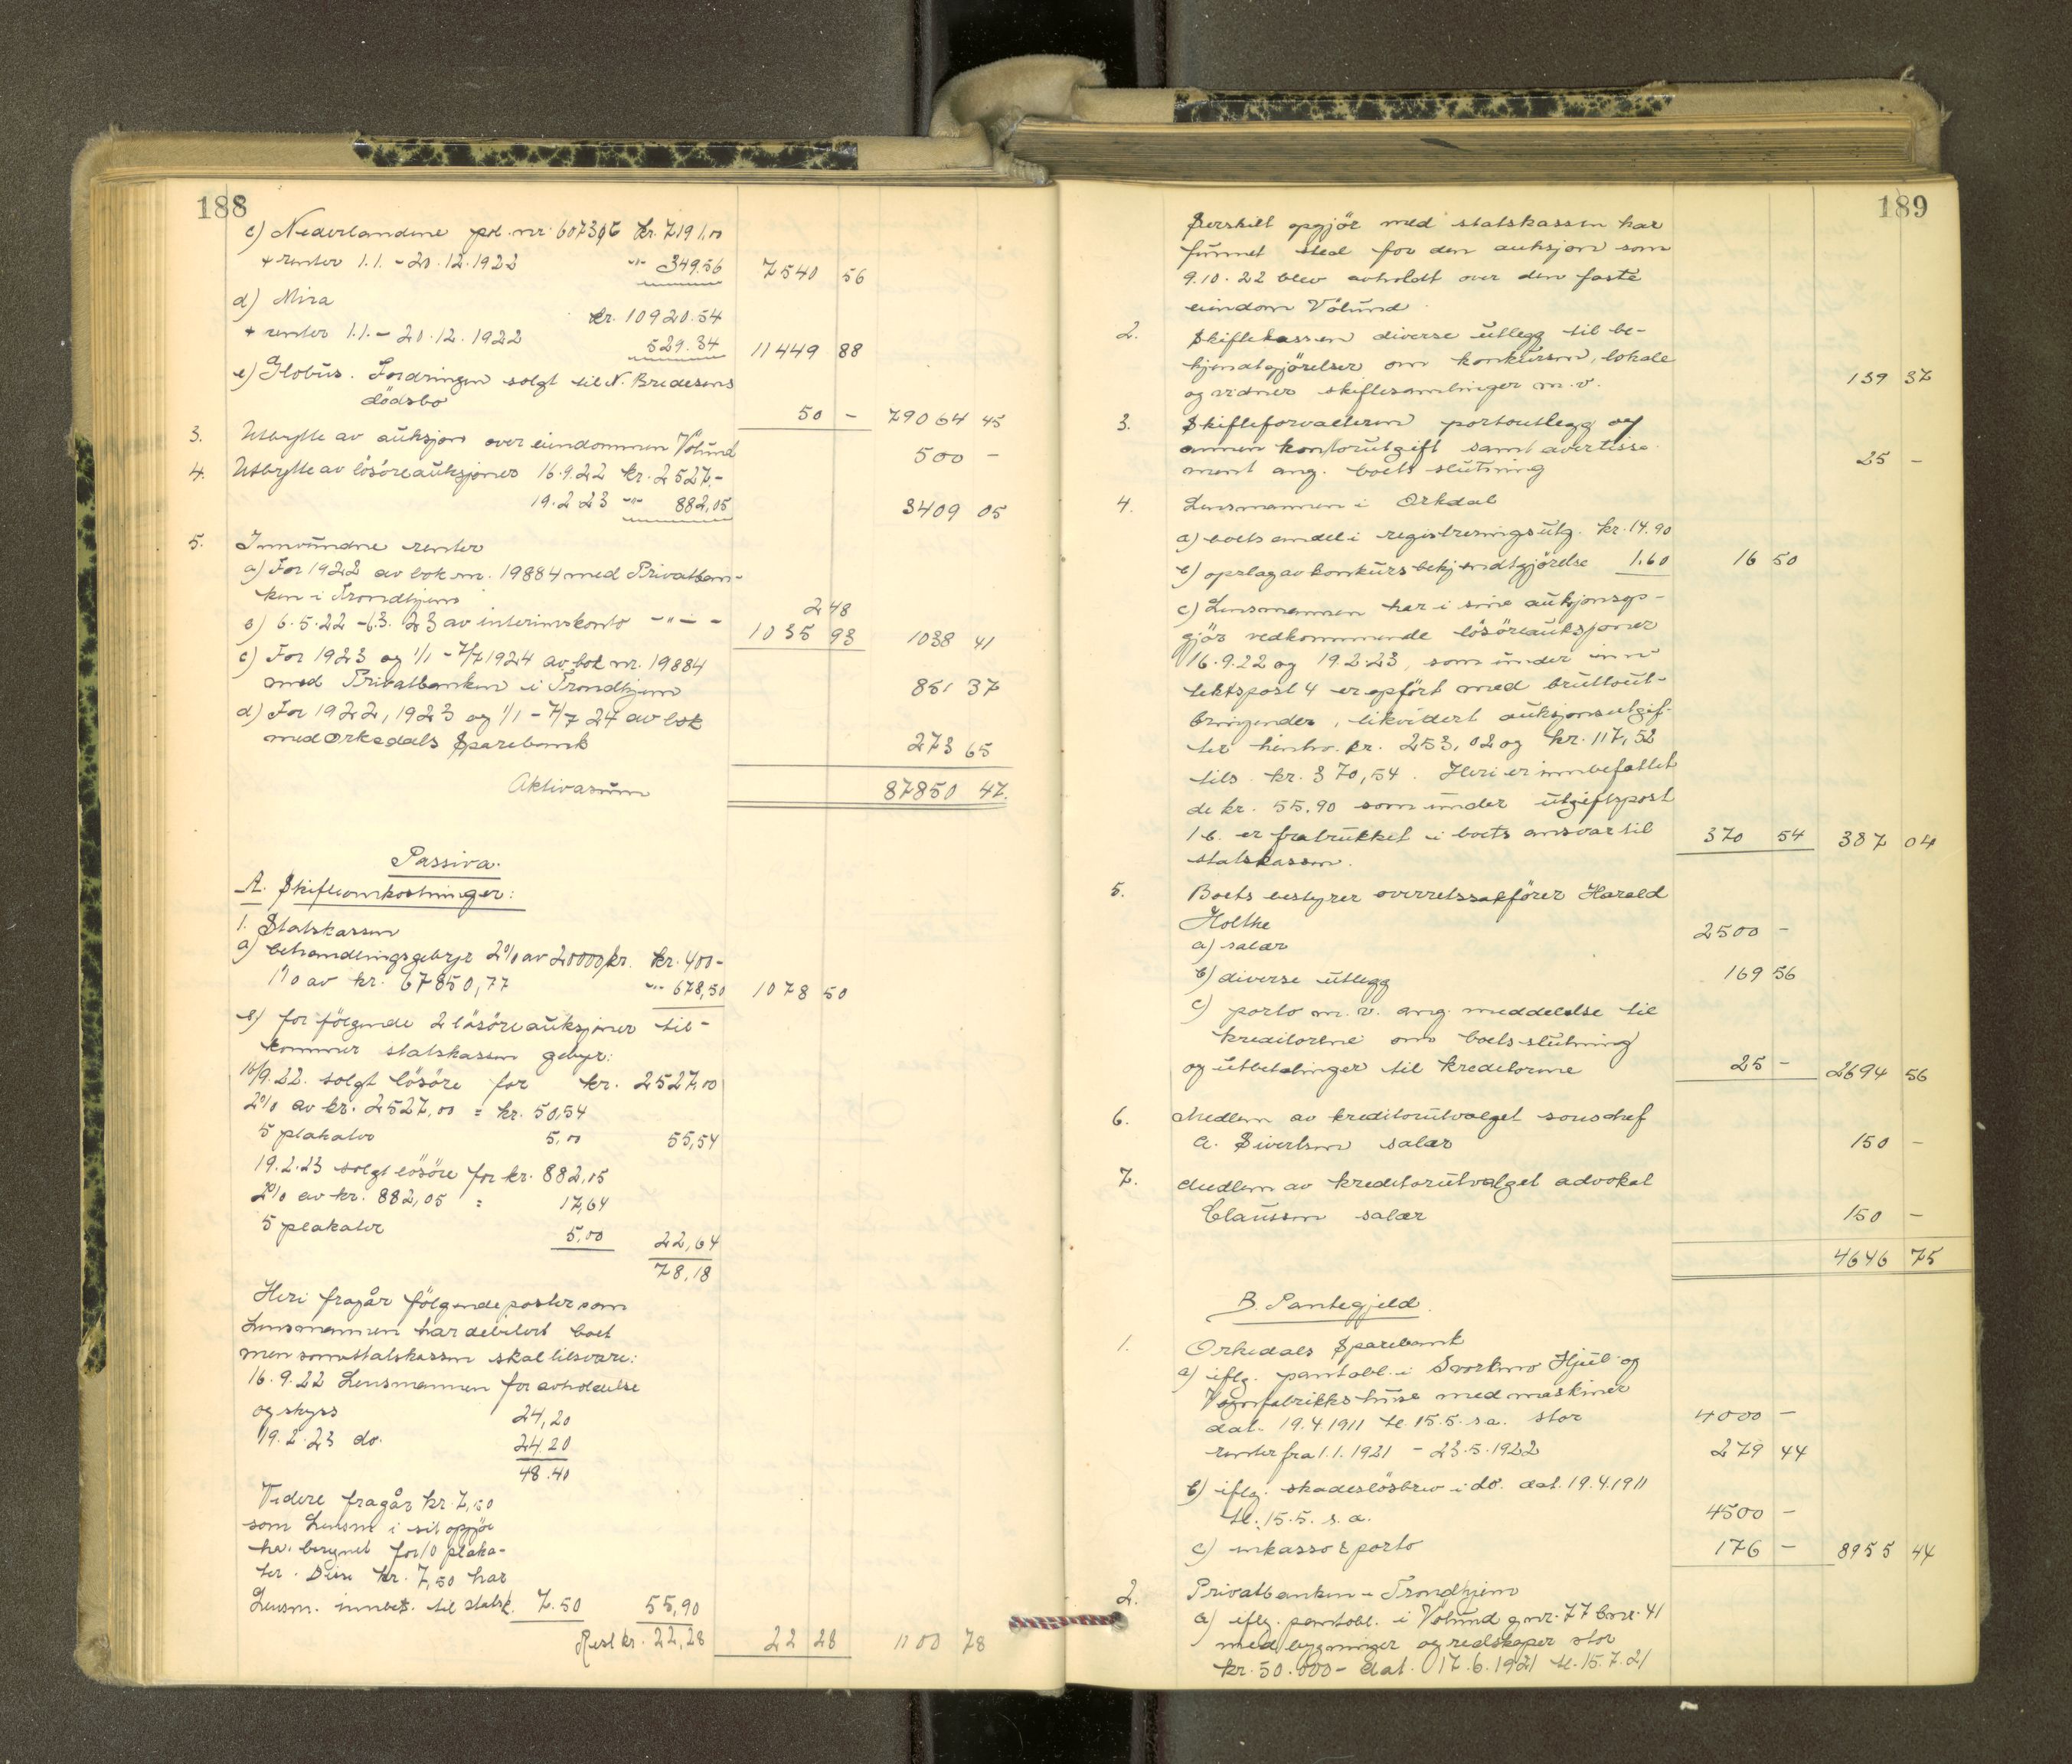 188
c) Nederlandene pol. nr. 607396 kr. 7191,00
+ renter 1.1. - 20.12.1922 -"- 349.56 7540 56
d) Mira
kr. 10920.54
+ renter 1.1. - 20.12.1922 529.34 11449 88
e) Globus. Fordringen solgt til N. Bredesens
dödsbo 50 - 79064 45
3. Utbytte av auksjon over eiendommen Völund 500 -
4. Utbytte av lösöreauksjoner 16.9.22 kr. 2527,-
19.2.23 -"- 882,05 3409 05
5. Innvundne renter
a) For 1922 av bok nr. 19884 med Privatban-
ken i Trondhjem 2 48
b) 6.5.22 - 6.3.23 av interimskonto -"- 1035 93 1038 41
c) For 1923 og 1/1 - 7/7 1924 av bok nr. 19884
med Privatbanken i Trondhjem 851 37
d) For 1922, 1923 og 1/1 - 7/7 24 av bok
med Orkedals Sparebank 273 65
Aktivasum 87850 47.
Passiva.
A. Skifteomkostninger:
1. Statskassen
a) behandlingsgebyr 2% av 20000 kr. kr. 400-
1% av kr. 67850,77 -"- 678,50 1078 50
b) for fölgende 2 lösöreauksjoner til-
kommer statskassen gebyr:
16/9.22. solgt lösöre for kr. 2527,00
2% av kr. 2527,00 = kr. 50,54
5 plakater 5,00 55,54
19.2.23 solgt lösöre for kr. 882,05
2% av kr. 882,05 = 17,64
5 plakater 5,00 22,64
78,18
Heri fragår fölgende poster som
Lensmannen har debitert boet
men som statskassen skal tilsvare:
16.9.22 Lensmannen for avholdelse
og skyss 24,20
19.2.23 do. 24.20
48.40
Videre fragår kr. 7,50
som Lensm i sit opgjör
har beregnet for 10 plaka-
ter. Disse kr. 7,50 har
Lensm. innbet. til statsk. 7.50 55,90
Rest kr. 22,28 22 28 1100 78
189
Særskilt opgjör med statskassen har
funnet sted for den auksjon som
9.10.22 blev avholdt over den faste
eiendom Völund.
2. Skiftekassen diverse utlegg til be-
kjendtgjörelser om konkursen, lokale
og vidner skiftesamlinger m.v. 139 37
3. Skifteforvalteren portoutlegg og
annen kontorutgift samt avertisse-
ment ang. boets slutning 25 -
4. Lensmannen i Orkdal
a) boets andel i registreringsutg. kr. 14.90
b) opslag av konkursbekjendtgjörelse 1.60 16 50
c) Lensmannen har i sine auksjonsop-
gjör vedkommende lösöreauksjoner
16.9.22 og 19.2.23, som under inn-
tektspost 4 er opfört med bruttout-
bringender, likvidert auksjonsutgif-
ter henhv. kr. 253,02 og kr. 117,52
tils. kr. 370,54. Heri er innbefattet
de kr. 55.90 som under utgiftspost
1 b. er fratrukket i boets ansvar til
statskassen. 370 54 387 04
5. Boets bestyrer overretssakförer Harald
Holtke
a) salær 2500 -
b) diverse utlegg 169 56
c) porto m.v. ang. meddelelse til
kreditorene om boets slutning
og utbetalinger til kreditorene 25 - 2694 56
6. Medlem av kreditorutvalget souschef
A. Sivertsen salær 150 -
7. Medlem av kreditorutvalget advokat
Claussen salær 150 -
4646 75
B. Pantegjeld.
1. Orkedals Sparebank
a) iflg. pantobl. i Svorkmo Hjul- og
Vognfabrikks huse med maskiner
dat. 19.4.1911 tl. 15.5. s.a. stor 4000 -
renter fra 1.1.1921 - 23.5.1922 279 44
b) iflg. skadeslösbrev i do. dat. 19.4.1911
tl. 15.5. s.a. 4500 -
c) inkasso & porto 176 - 8955 44
2. Privatbanken i Trondhjem
a) iflg. pantobl. i Völund gnr. 77 bnr. 41
med bygninger og redskaper stor
kr. 50.000- dat. 17.6.1921 tl. 15.7.21